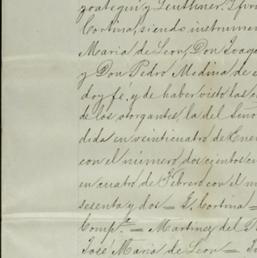 goategui y Leuthner. Ifir
Cortina, siendo instrumen
Maria de Leon, Don Joaq
y Don Pedro Medina de e
doy fé, y de haber visto las c
de los otorgantes, la del Seño
dida en veinticuatro de Ene
con el número doscientos ci
en cuatro de Febrero con el n
sesenta y dos = G. Cortina =
Compª. = Martinez del P
José Maria de Leon = Jo